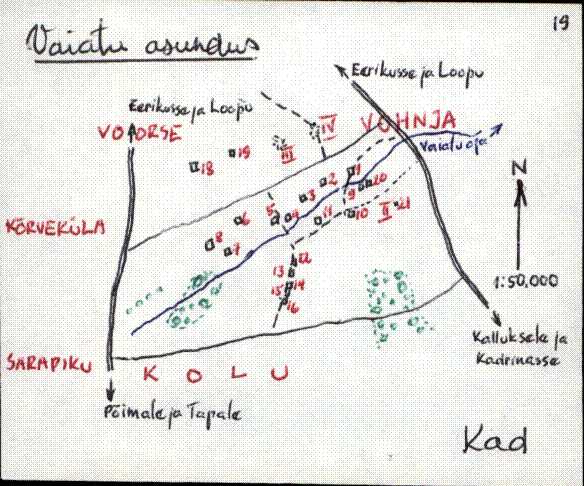 19
Vaiatu asundus
Eerikusse ja Loopu
Eerikusse ja Loopu
VOORSE
VOHNJA
IV
III
Vaiatu oja
18
19
1
2
20
3
9
N
KÕRVEKÜLA
6
5
4
11
10
II
21
8
7
12
13
14
15
16
1:50,000
SARAPIKU
KOLU
Kalluksele ja
Kadrinasse
Põimale ja Tapale
Kad